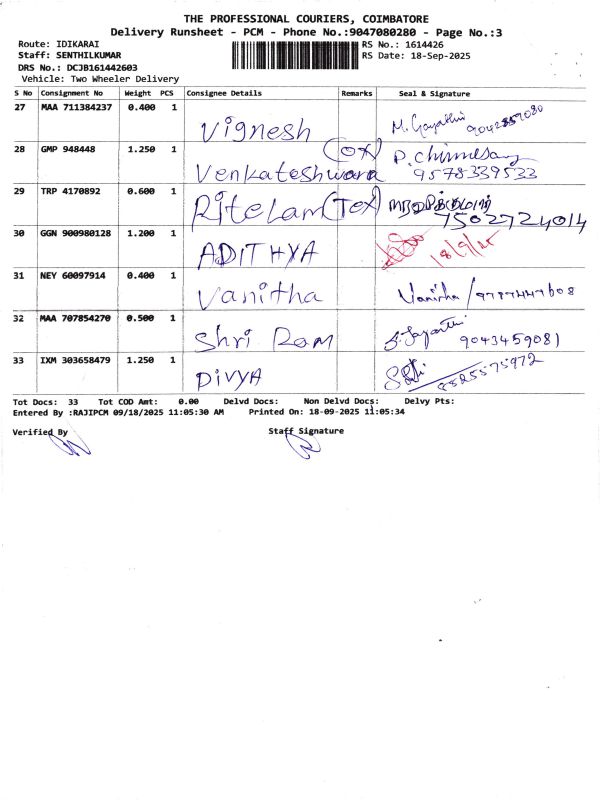 THE PROFESSIONAL COURIERS, COIMBATORE
Delivery Runsheet - PCM - Phone No.:9047080280 - Page No.:3
Route: IDIKARAI RS No.: 1614426
Staff: SENTHILKUMAR RS Date: 18-Sep-2025
DRS No.: DCJB161442603
Vehicle: Two Wheeler Delivery
S No Consignment No Weight PCS Consignee Details Remarks Seal & Signature
27 MAA 711384237 0.400 1 Vignesh M. Gayathri
28 GMP 948448 1.250 1 Venkateshwara (ox) P. Chinnasamy
9578339533
29 TRP 4170892 0.600 1 Ritelam (Tex)
7502724014
30 GGN 900980128 1.200 1 ADITHYA 18/9/25
31 NEY 60097914 0.400 1 Vanitha Vanitha / 9787447608
32 MAA 707854270 0.500 1 Shri Ram 9043459081
33 IXM 303658479 1.250 1 DIVYA 8525575972
Tot Docs: 33 Tot COD Amt: 0.00 Delvd Docs: Non Delvd Docs: Delvy Pts:
Entered By :RAJIPCM 09/18/2025 11:05:30 AM Printed On: 18-09-2025 11:05:34
Verified By Staff Signature